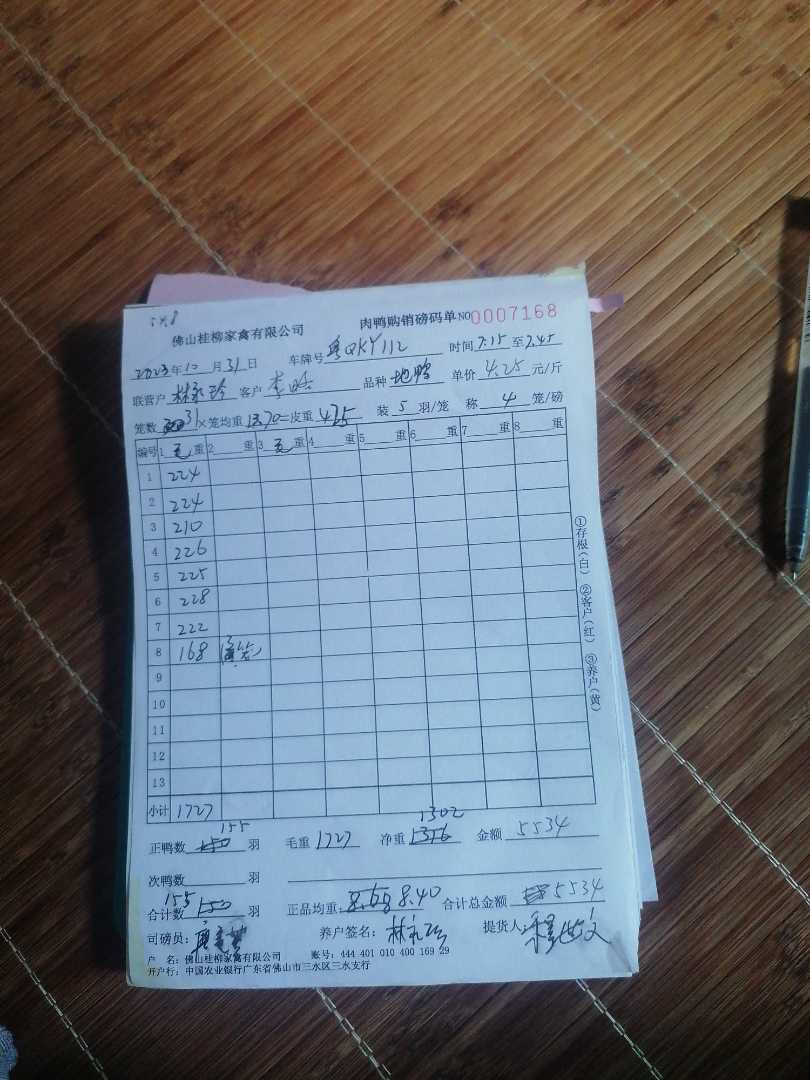 肉鸭购销磅码单 NO 0007168
佛山桂柳家禽有限公司
2023年10月31日 车牌号 粤QKY112 时间 7:15 至 7.45
联营户 林永珍 客户 李 品种 地鸭 单价 4.25 元/斤
笼数 31×笼均重 13.70=皮重 425 装 5 羽/笼 称 4 笼/磅
编号 1 毛 重 2 重 3 毛 重 4 重 5 重 6 重 7 重 8 重
1 224
2 224
3 210
4 226
5 225
6 228
7 222
8 168
9
10
11
12
13
小计 1727
155 1302
正鸭数 150 羽 毛重 1727 净重 1376 金额 5534
次鸭数 羽
155
合计数 150 羽 正品均重: 8.40 合计总金额 5534
司磅员: 养户签名: 林永珍 提货人:
户 名: 佛山桂柳家禽有限公司 账号: 444 401 010 400 169 29
开户行: 中国农业银行广东省佛山市三水区三水支行
①存根(白) ②客户(红) ③养户(黄)